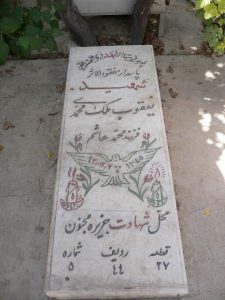 پاسدار مفقودالاثر
شهید
یعقوب ملک محمدی
فرزند محمد هاشم
محل شهادت جزیره مجنون
قطعه ردیف شماره
۲۷ ۴۴ ۵